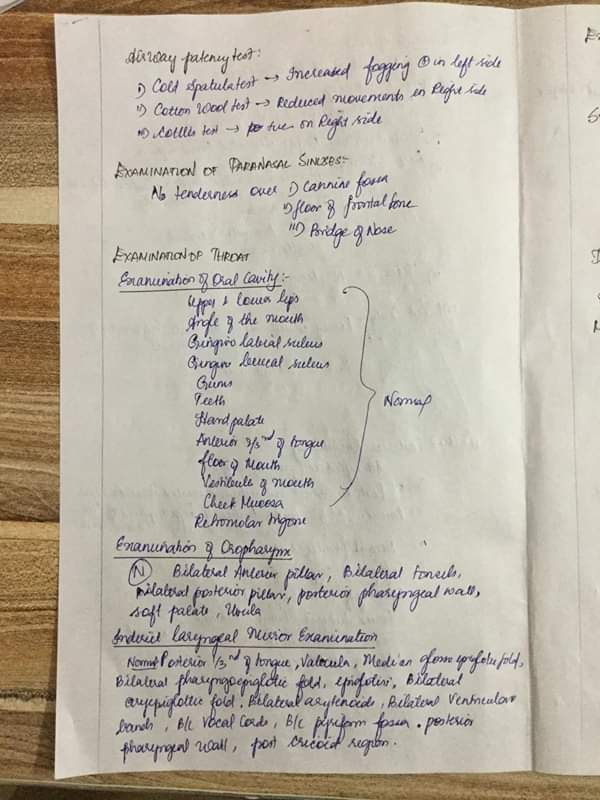 Airway patency test:
i) Cold spatula test → Increased fogging ⊕ in left side
ii) Cotton Wool test → Reduced movements in Right side
iii) Cottles test → +tive on Right side
EXAMINATION OF PARANASAL SINUSES:-
No tenderness over i) Cannine fossa
ii) floor of frontal bone
iii) Bridge of Nose
EXAMINATION OF THROAT
Examination of Oral Cavity:-
Upper & lower lips
Angle of the mouth
Gingivo labial sulcus
Gingivo buccal sulcus
Gums
Teeth
Hard palate
Anterior 2/3rd of tongue
floor of Mouth
Vestibule of mouth
Cheek Mucosa
Retromolar trigone
Normal
Examination of Oropharynx
(N) Bilateral Anterior pillar, Bilateral tonsils,
Bilateral posterior pillar, posterior pharyngeal wall,
soft palate, Uvula
Indirect laryngeal Mirror Examination
Normal Posterior 1/3rd of tongue, Valecula, Median glosso epiglotic fold,
Bilateral pharyngoepiglotic fold, epiglotis, Bilateral
aryepiglottic fold, Bilateral arytenoids, Bilateral Ventricular
bands, B/L Vocal Cords, B/L pyriform fossa, posterior
pharyngeal wall, post cricoid region.